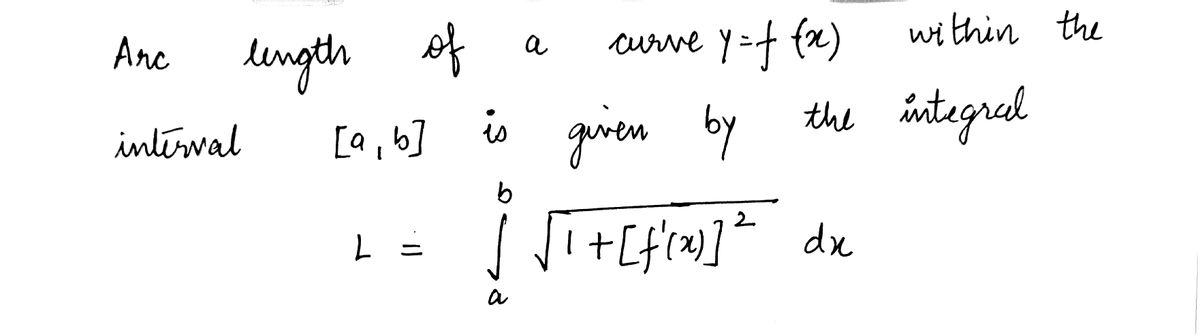 Arc length of a curve y=f(x) within the
interval [a,b] is given by the integral
L = ∫ₐᵇ √(1+[f'(x)]²) dx